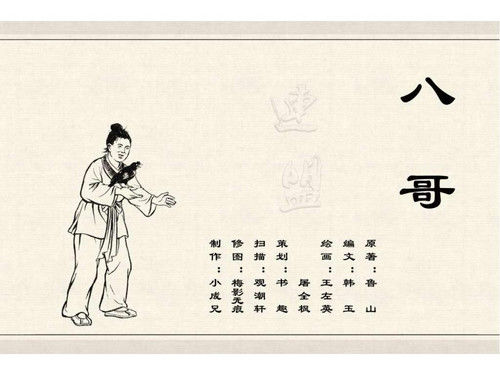 八哥
原著：鲁山
编文：韩玉
绘画：王左英
屠全枫
策划：书趣
扫描：观潮轩
修图：梅影无痕
制作：小成兄
连盟